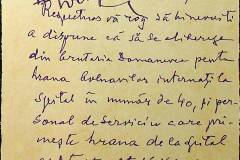 Respectuos vă rog să binevoiți
a dispune că să se elibereze
din brutăria Domanevca pentru
hrana bolnavilor internați la
spital în număr de 40, și per-
sonal de serviciu care pri-
mește hrana de la spital